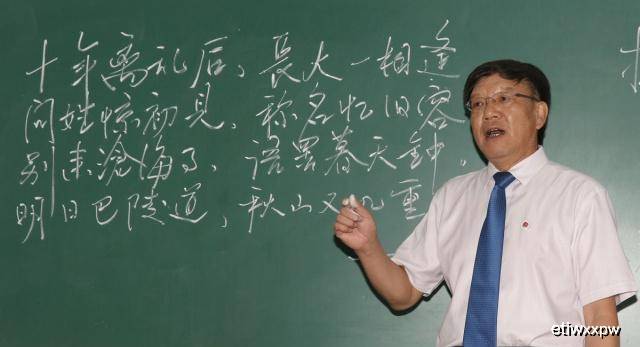 十年离乱后，長大一相逢
问姓惊初见，称名忆旧容
别来滄海事，语罢暮天鐘。
明日巴陵道，秋山又几重
etiwxxpw